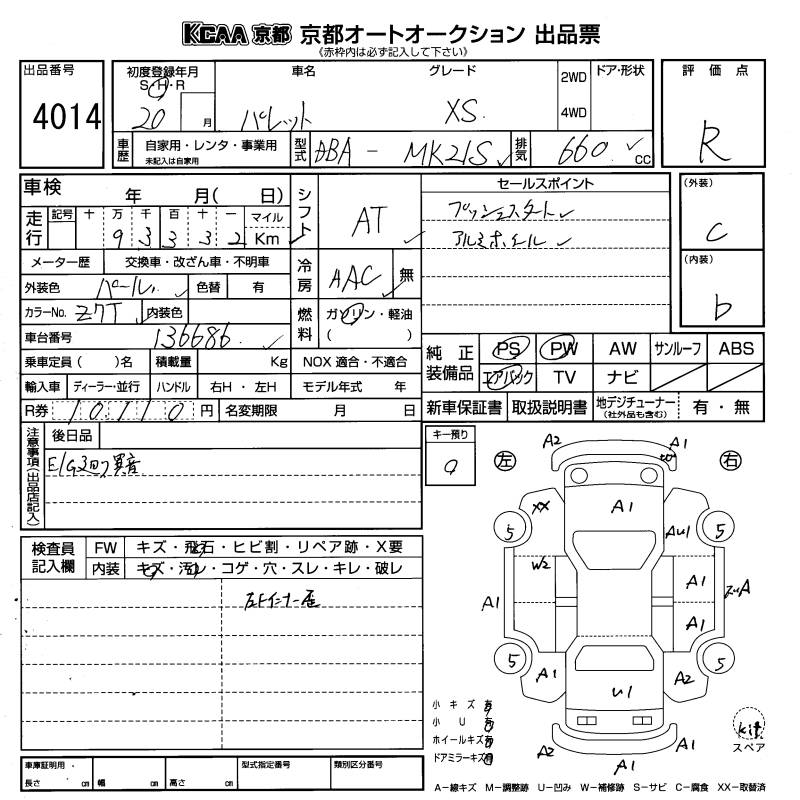 KCAA 京都 京都オートオークション 出品票
《赤枠内は必ず記入して下さい》
出品番号 初度登録年月 車名 グレード ドア・形状 評価点
S・H・R 2WD
4014 20 月 パレット XS 4WD R
車歴 自家用・レンタ・事業用 型式 DBA - MK21S 排気 660 CC
未記入は自家用
車検 年 月( 日) シフト AT セールスポイント (外装)
走行 記号 十 万 千 百 十 一 マイル プッシュスタート C
9 3 3 3 2 Km アルミホイール
メーター歴 交換車・改ざん車・不明車 冷房 AAC 無 (内装)
外装色 パール 色替 有 b
カラーNo. Z7T 内装色 燃料 ガソリン・軽油
( )
車台番号 136686
純正装備品 PS PW AW サンルーフ ABS
乗車定員( )名 積載量 Kg NOX 適合・不適合
エアバック TV ナビ
輸入車 ディーラー・並行 ハンドル 右H・左H モデル年式 年
新車保証書 取扱説明書 地デジチューナー 有・無
(社外品も含む)
R券 10110 円 名変期限 月 日
注意事項(出品店記入) 後日品 キー預り
E/G3回ク異音
左 右
A2 A1
W
XX A1 AU1
5 5
W2 A1
A1 A1
5 5
A1 U1 A2
A2 A1 A1
検査員記入欄 FW キズ・飛石・ヒビ割・リペア跡・X要
内装 キズ・汚レ・コゲ・穴・スレ・キレ・破レ
小キズ 有
小U 有
ホイールキズ 有
ドアミラーキズ 有
kit
スペア
車庫証明用・ 型式指定番号 類別区分番号
長さ cm 幅 cm 高さ cm
A－線キズ M－調整跡 U－凹み W－補修跡 S－サビ C－腐食 XX－取替済